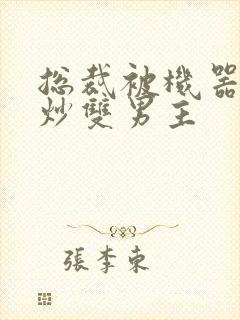 総裁被機器
炒雙男主
張李東